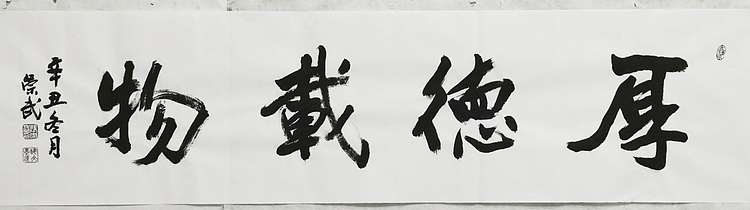 厚德載物
辛丑冬月
崇武